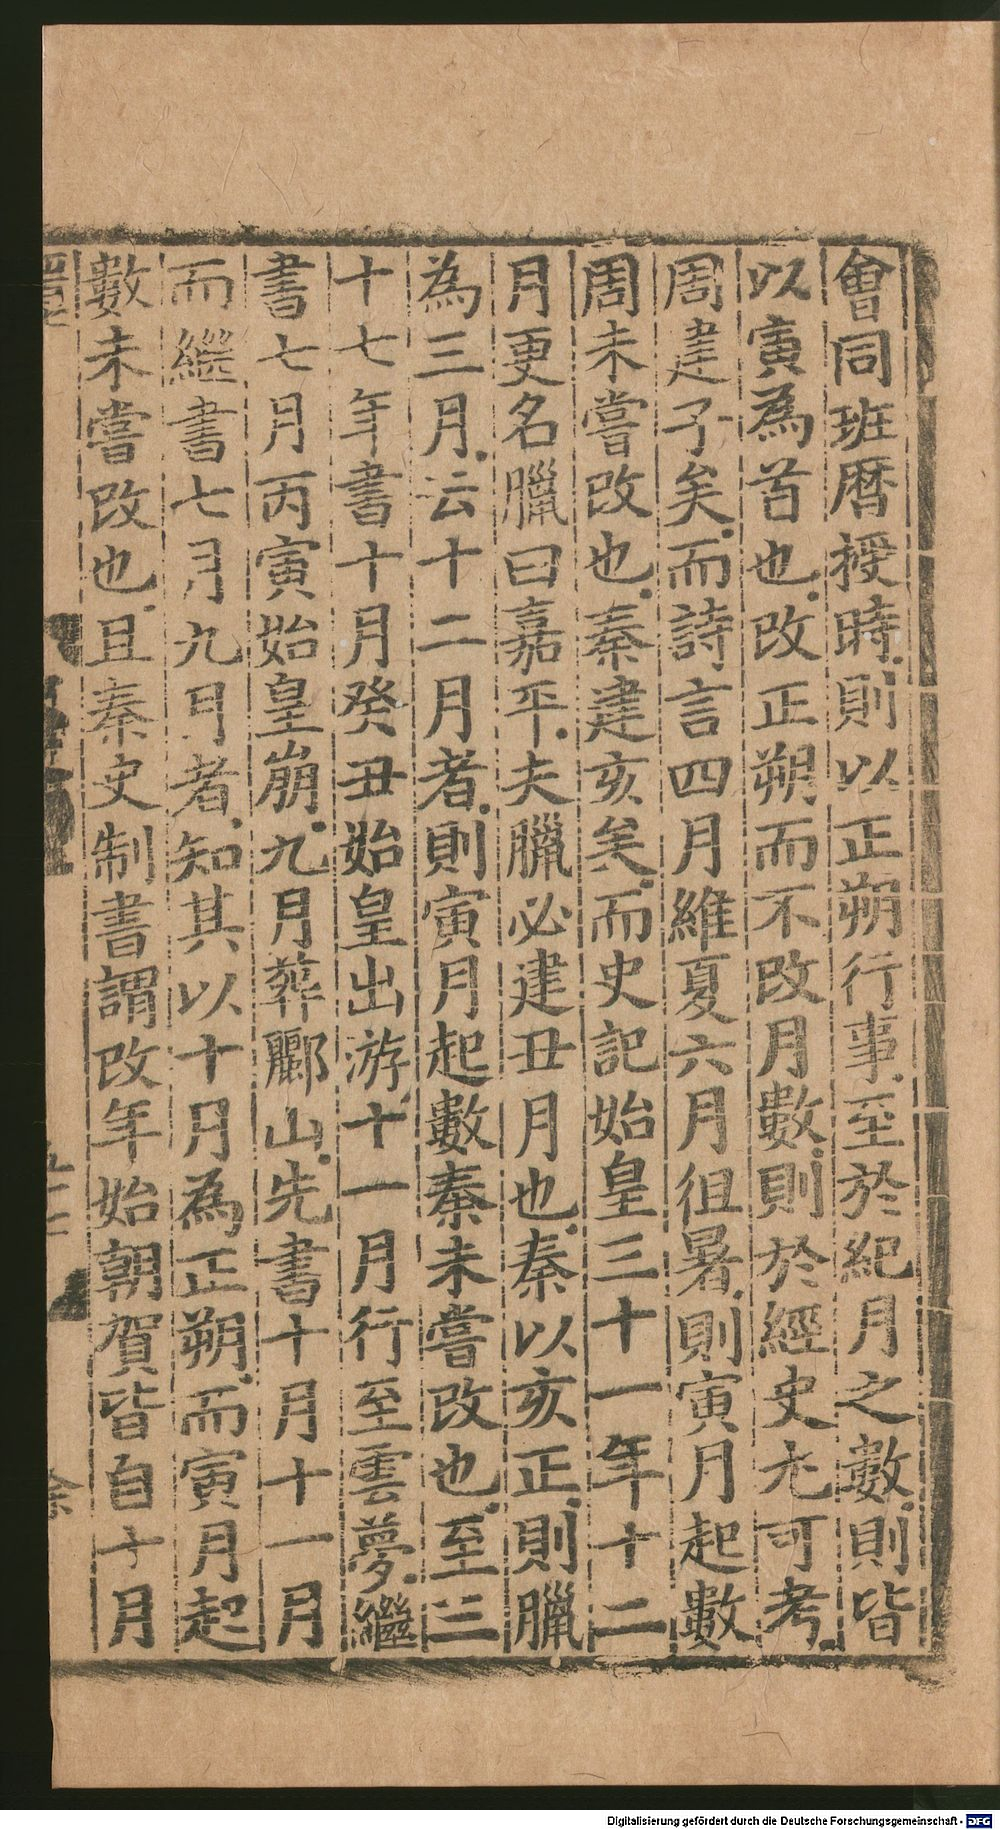 會同班曆授時則以正朔行事至於紀月之數則皆
以寅為首也改正朔而不改月數則於經史尤可考
周建子矣而詩言四月維夏六月徂暑則寅月起數
周未嘗改也秦建亥矣而史記始皇三十一年十二
月更名臘曰嘉平夫臘必建丑月也秦以亥正則臘
為三月云十二月者則寅月起數秦未嘗改也至三
十七年書十月癸丑始皇出游十一月行至雲夢繼
書七月丙寅始皇崩九月葬酈山先書十月十一月
而繼書七月九月者知其以十月為正朔而寅月起
數未嘗改也且秦史制書謂改年始朝賀皆自十月
Digitalisierung gefördert durch die Deutsche Forschungsgemeinschaft - DFG